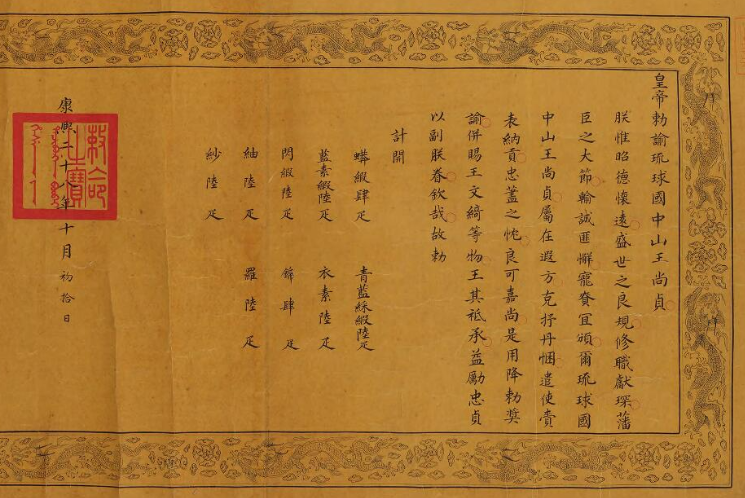 皇帝勅諭琉球國中山王尚貞
朕惟昭德懷遠盛世之良規修職獻琛藩
臣之大節輸誠匪懈寵賚宜頒爾琉球國
中山王尚貞屬在遐方克抒丹悃遣使賫
表納貢忠藎之忱良可嘉尚是用降勅奬
諭併賜王文綺等物王其祗承益勵忠貞
以副朕眷欽哉故勅
計開
蟒緞肆疋 青藍綵緞陸疋
藍素緞陸疋 衣素陸疋
閃緞陸疋 錦肆疋
紬陸疋 羅陸疋
紗陸疋
康熙二十八年十月初拾日
敕命之寶